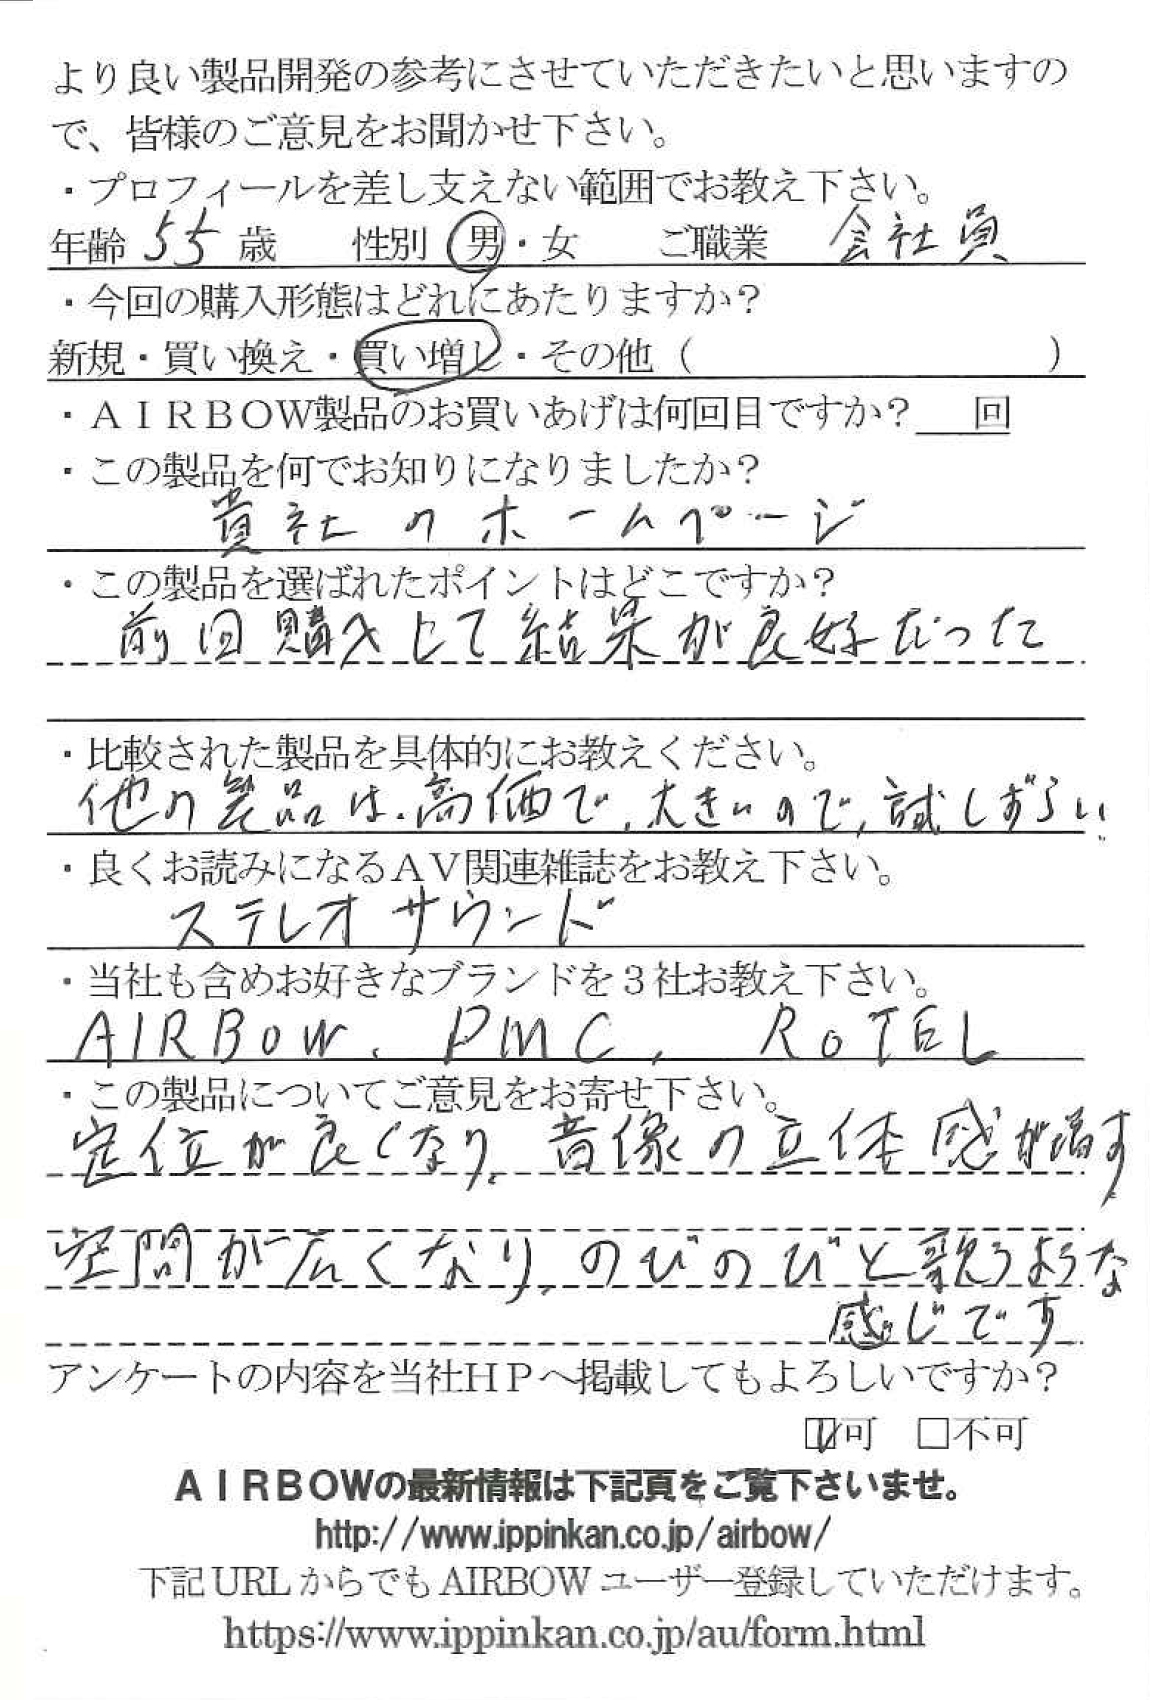 より良い製品開発の参考にさせていただきたいと思いますの
で、皆様のご意見をお聞かせ下さい。
・プロフィールを差し支えない範囲でお教え下さい。
年齢 55 歳 性別 男・女 ご職業 会社員
・今回の購入形態はどれにあたりますか？
新規・買い換え・買い増し・その他（ ）
・ＡＩＲＢＯＷ製品のお買いあげは何回目ですか？ 回
・この製品を何でお知りになりましたか？
貴社のホームページ
・この製品を選ばれたポイントはどこですか？
前回購入して結果が良好だった
・比較された製品を具体的にお教えください。
他の製品は、高価で、大きいので、試しずらい
・良くお読みになるＡＶ関連雑誌をお教え下さい。
ステレオサウンド
・当社も含めお好きなブランドを３社お教え下さい。
AIRBOW、PMC, ROTEL
・この製品についてご意見をお寄せ下さい。
定位が良くなり、音像の立体感が増す
空間が広くなり、のびのびと歌うような
感じです
アンケートの内容を当社ＨＰへ掲載してもよろしいですか？
☑可 □不可
ＡＩＲＢＯＷの最新情報は下記頁をご覧下さいませ。
http://www.ippinkan.co.jp/airbow/
下記URLからでもAIRBOWユーザー登録していただけます。
https://www.ippinkan.co.jp/au/form.html